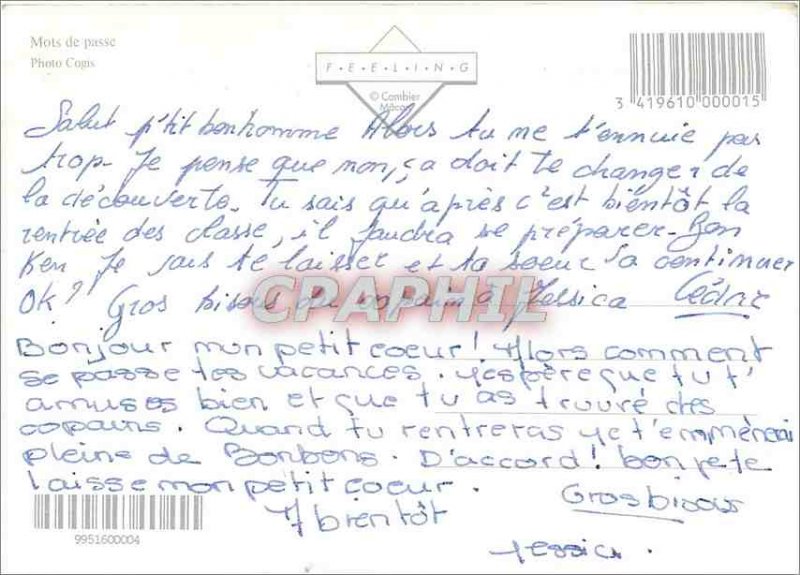 Mots de passe
Photo Cogis
F·E·E·L·I·N·G
© Cambier
Mâcon
3 419610 000015
Salut p'tit bonhomme Alors tu me t'ennuie pas
trop. Je pense que non, ça doit te changer de
la découverte. Tu sais qu'après c'est bientôt la
rentrée des classe, il faudra se préparer. Bon
Ken Je vais te laisser et ta soeur va continuer
OK? Gros bisous du copain à Jessica Cédric
CPARHIL
Bonjour mon petit coeur! Alors comment
se passe tes vacances. J'espère que tu t'
amuses bien et que tu as trouvé des
copains. Quand tu rentreras je t'emmènerai
pleins de Bonbons. D'accord! bon je te
laisse mon petit coeur.
Gros bisous
A bientôt
Jessica.
9951600004